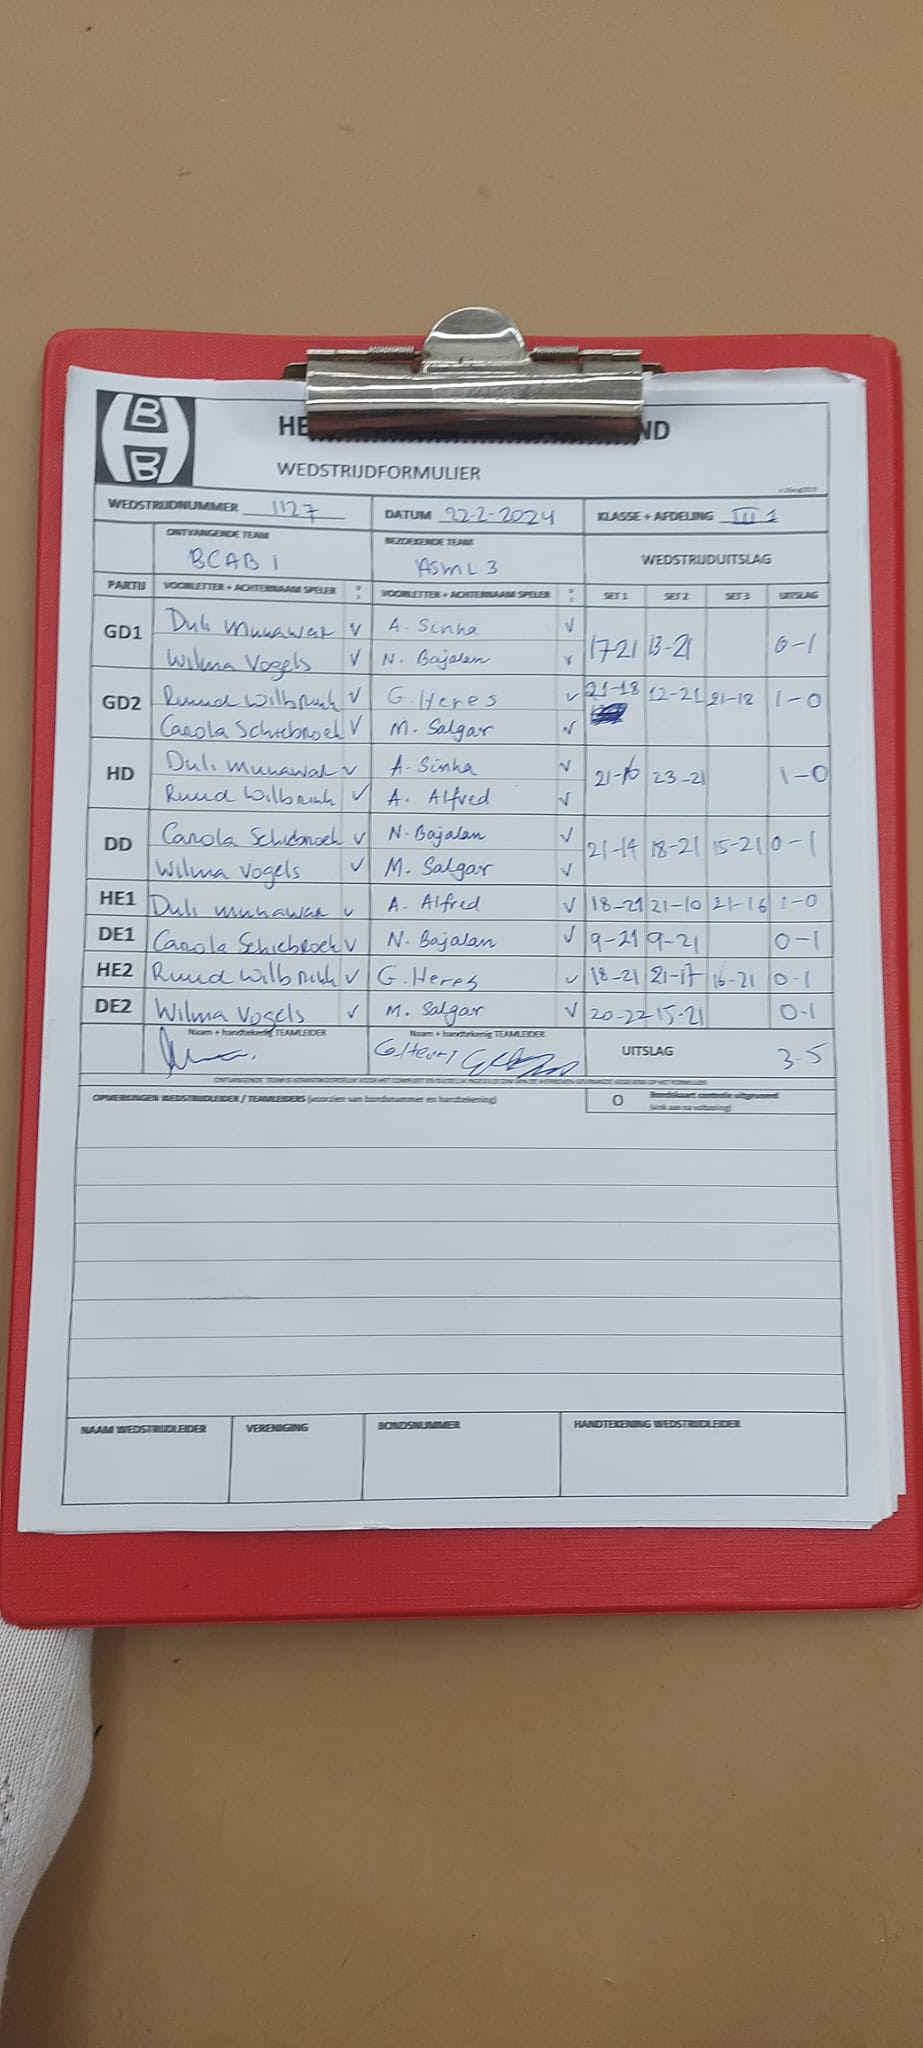 B
B
HE ND
WEDSTRIJDFORMULIER
WEDSTRIJDNUMMER 1127 DATUM 22-2-2024 KLASSE + AFDELING III 1
ONTVANGENDE TEAM BEZOEKENDE TEAM WEDSTRIJDUITSLAG
BCAB 1 ASML 3
PARTIJ VOORLETTER + ACHTERNAAM SPELER VOORLETTER + ACHTERNAAM SPELER SET 1 SET 2 SET 3 UITSLAG
GD1 Duli Munawar V A. Sinha V 17-21 13-21 0-1
Wilma Vogels V N. Bajalan V
GD2 Ruud Wilbrink V G. Heres V 21-18 12-21 21-18 1-0
Carola Schiebroek V M. Salgar V
HD Duli Munawar V A. Sinha V 21-16 23-21 1-0
Ruud Wilbrink V A. Alfred V
DD Carola Schiebroek V N. Bajalan V 21-14 18-21 15-21 0-1
Wilma Vogels V M. Salgar V
HE1 Duli Munawar V A. Alfred V 18-21 21-10 21-16 1-0
DE1 Carola Schiebroek V N. Bajalan V 9-21 9-21 0-1
HE2 Ruud Wilbrink V G. Heres V 18-21 21-17 16-21 0-1
DE2 Wilma Vogels V M. Salgar V 20-22 15-21 0-1
Naam + handtekenig TEAMLEIDER Naam + handtekenig TEAMLEIDER UITSLAG 3-5
G. Heres
OPMERKINGEN WEDSTRIJDLEIDER / TEAMLEIDERS (voorzien van bondsnummer en handtekening) O Bondskaart controle uitgevoerd
NAAM WEDSTRIJDLEIDER VERENIGING BONDSNUMMER HANDTEKENING WEDSTRIJDLEIDER